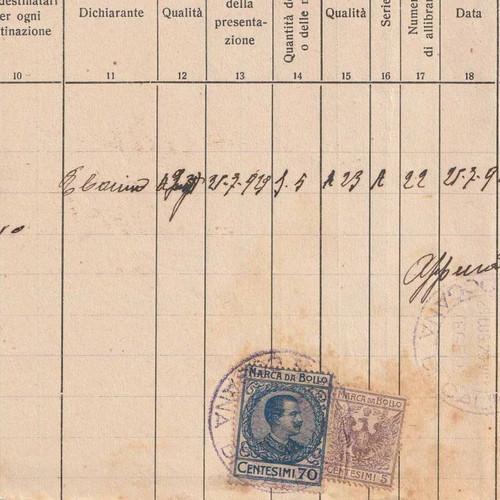 destinatari
er ogni
tinazione
Dichiarante
Qualità
della
presenta-
zione
Quantità de
o delle m
Qualità
Serie
Numer
di allibra
Data
10 11 12 13 14 15 16 17 18
25-7-929 f. 5 A 23 A 22 25-7-9
MARCA DA BOLLO
CENTESIMI 70
MARCA DA BOLLO
CENTESIMI 5